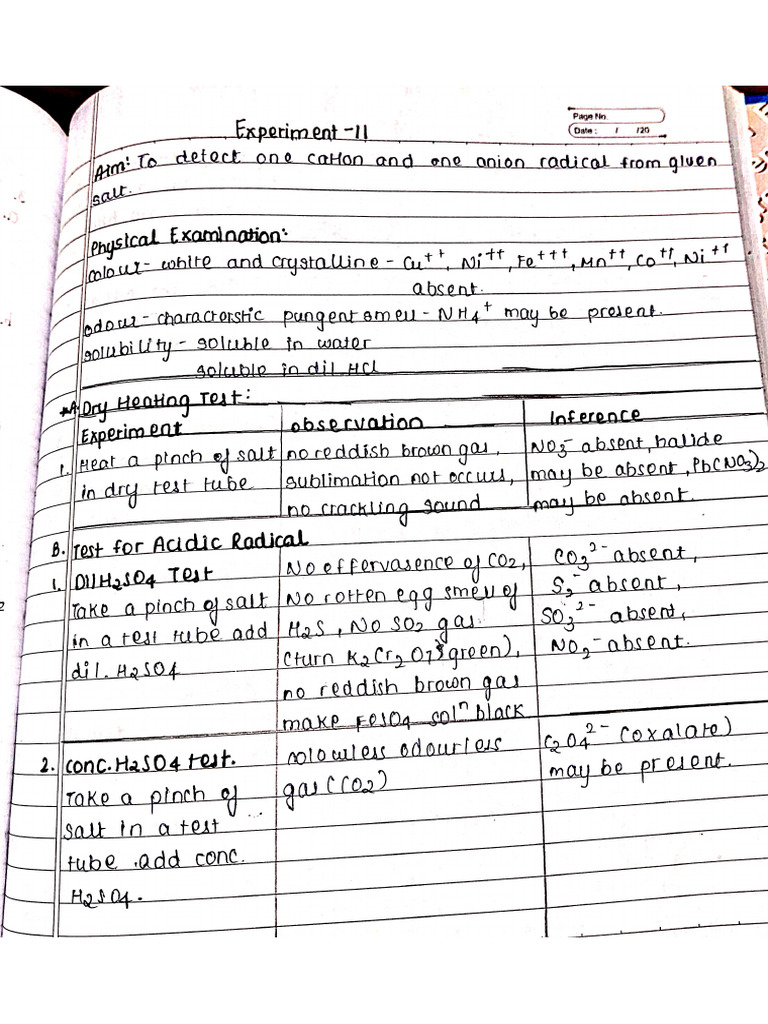 Experiment -11
Page No.
Date : / /20
Aim: To detect one cation and one anion radical from given
salt.
Physical Examination:
colour - white and crystalline - Cu++, Ni++, Fe+++, Mn++, Co++, Ni++
absent.
odour - characterstic pungent smell - NH4+ may be present.
solubility - soluble in water
soluble in dil HCl
*A. Dry Heating Test:
Experiment | observation | Inference
1. Heat a pinch of salt | no reddish brown gas, | NO3- absent, halide
in dry test tube | sublimation not occurs, | may be absent, Pb(NO3)2
no crackling sound | may be absent.
B. Test for Acidic Radical
1. Dil H2SO4 Test | No effervasence of CO2, | CO3 2- absent,
Take a pinch of salt | No rotten egg smell of | S2- absent,
in a test tube add | H2S, No SO2 gas | SO3 2- absent,
dil. H2SO4 | (turn K2Cr2O7 green), | NO2- absent.
no reddish brown gas
make FeSO4 soln black
2. conc. H2SO4 test. | colourless odourless | C2O4 2- (oxalate)
Take a pinch of | gas (CO2) | may be present.
salt in a test
tube .add conc.
H2SO4.